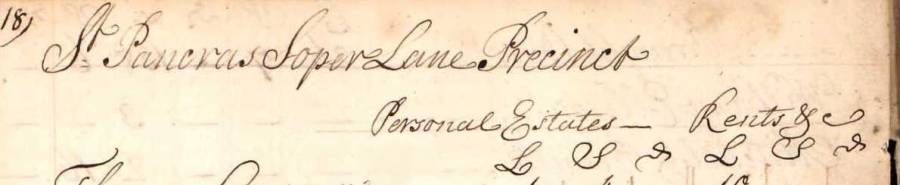 18)
St Pancras Soper Lane Precinct
Personal Estates — Rents &c
L S d L S d